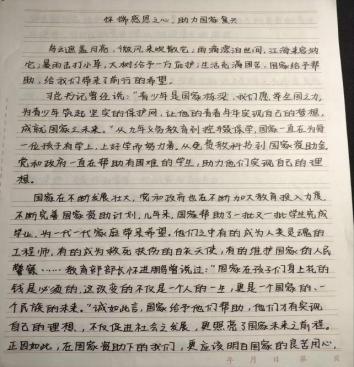 怀揣感恩之心，助力国家复兴
乌云遮盖月亮，微风来吹散它；雨滴滂泊世间，江海来容纳
它；暴雨击打小草，大树给予一方庇护；生活充满困苦，国家给予帮
助，给我们带来了前行的希望。
习总书记曾经说："青少年是国家栋梁，我们愿举全国之力，
为青少年筑起坚实的保护网，让他的青春年年实现自己的梦想，
成就国家之未来。"从九年义务教育到控辍保学，国家一直在为每
一位孩子有学上，上好学而努力着，从免费教科书到国家资助金
党和政府一直在帮助有困难的学生，助力他们实现自己的理
想。
国家在不断发展壮大，党和政府也在不断加大教育投入力度，
不断完善国家资助计划，几年来，国家帮助了一批又一批学生完成
毕业，为一代一代家庭带来希望。他们之中有的成为人类灵魂的
工程师，有的成为救死扶伤的白衣天使，有的维护国家的人民
警察……教育部部长怀进鹏曾说过："国家在孩子们身上花的
钱是必须的，这改变的不仅是一个人的一生，更是一个国家的、一
个民族的未来。"诚如此言，国家给予他们帮助，他们才有实现
自己的理想，不仅促进社会之发展，更照亮了国家未来之前程。
正因如此，在国家资助下的我们，更应该明白国家的良苦用心，
年 月 日 第 页